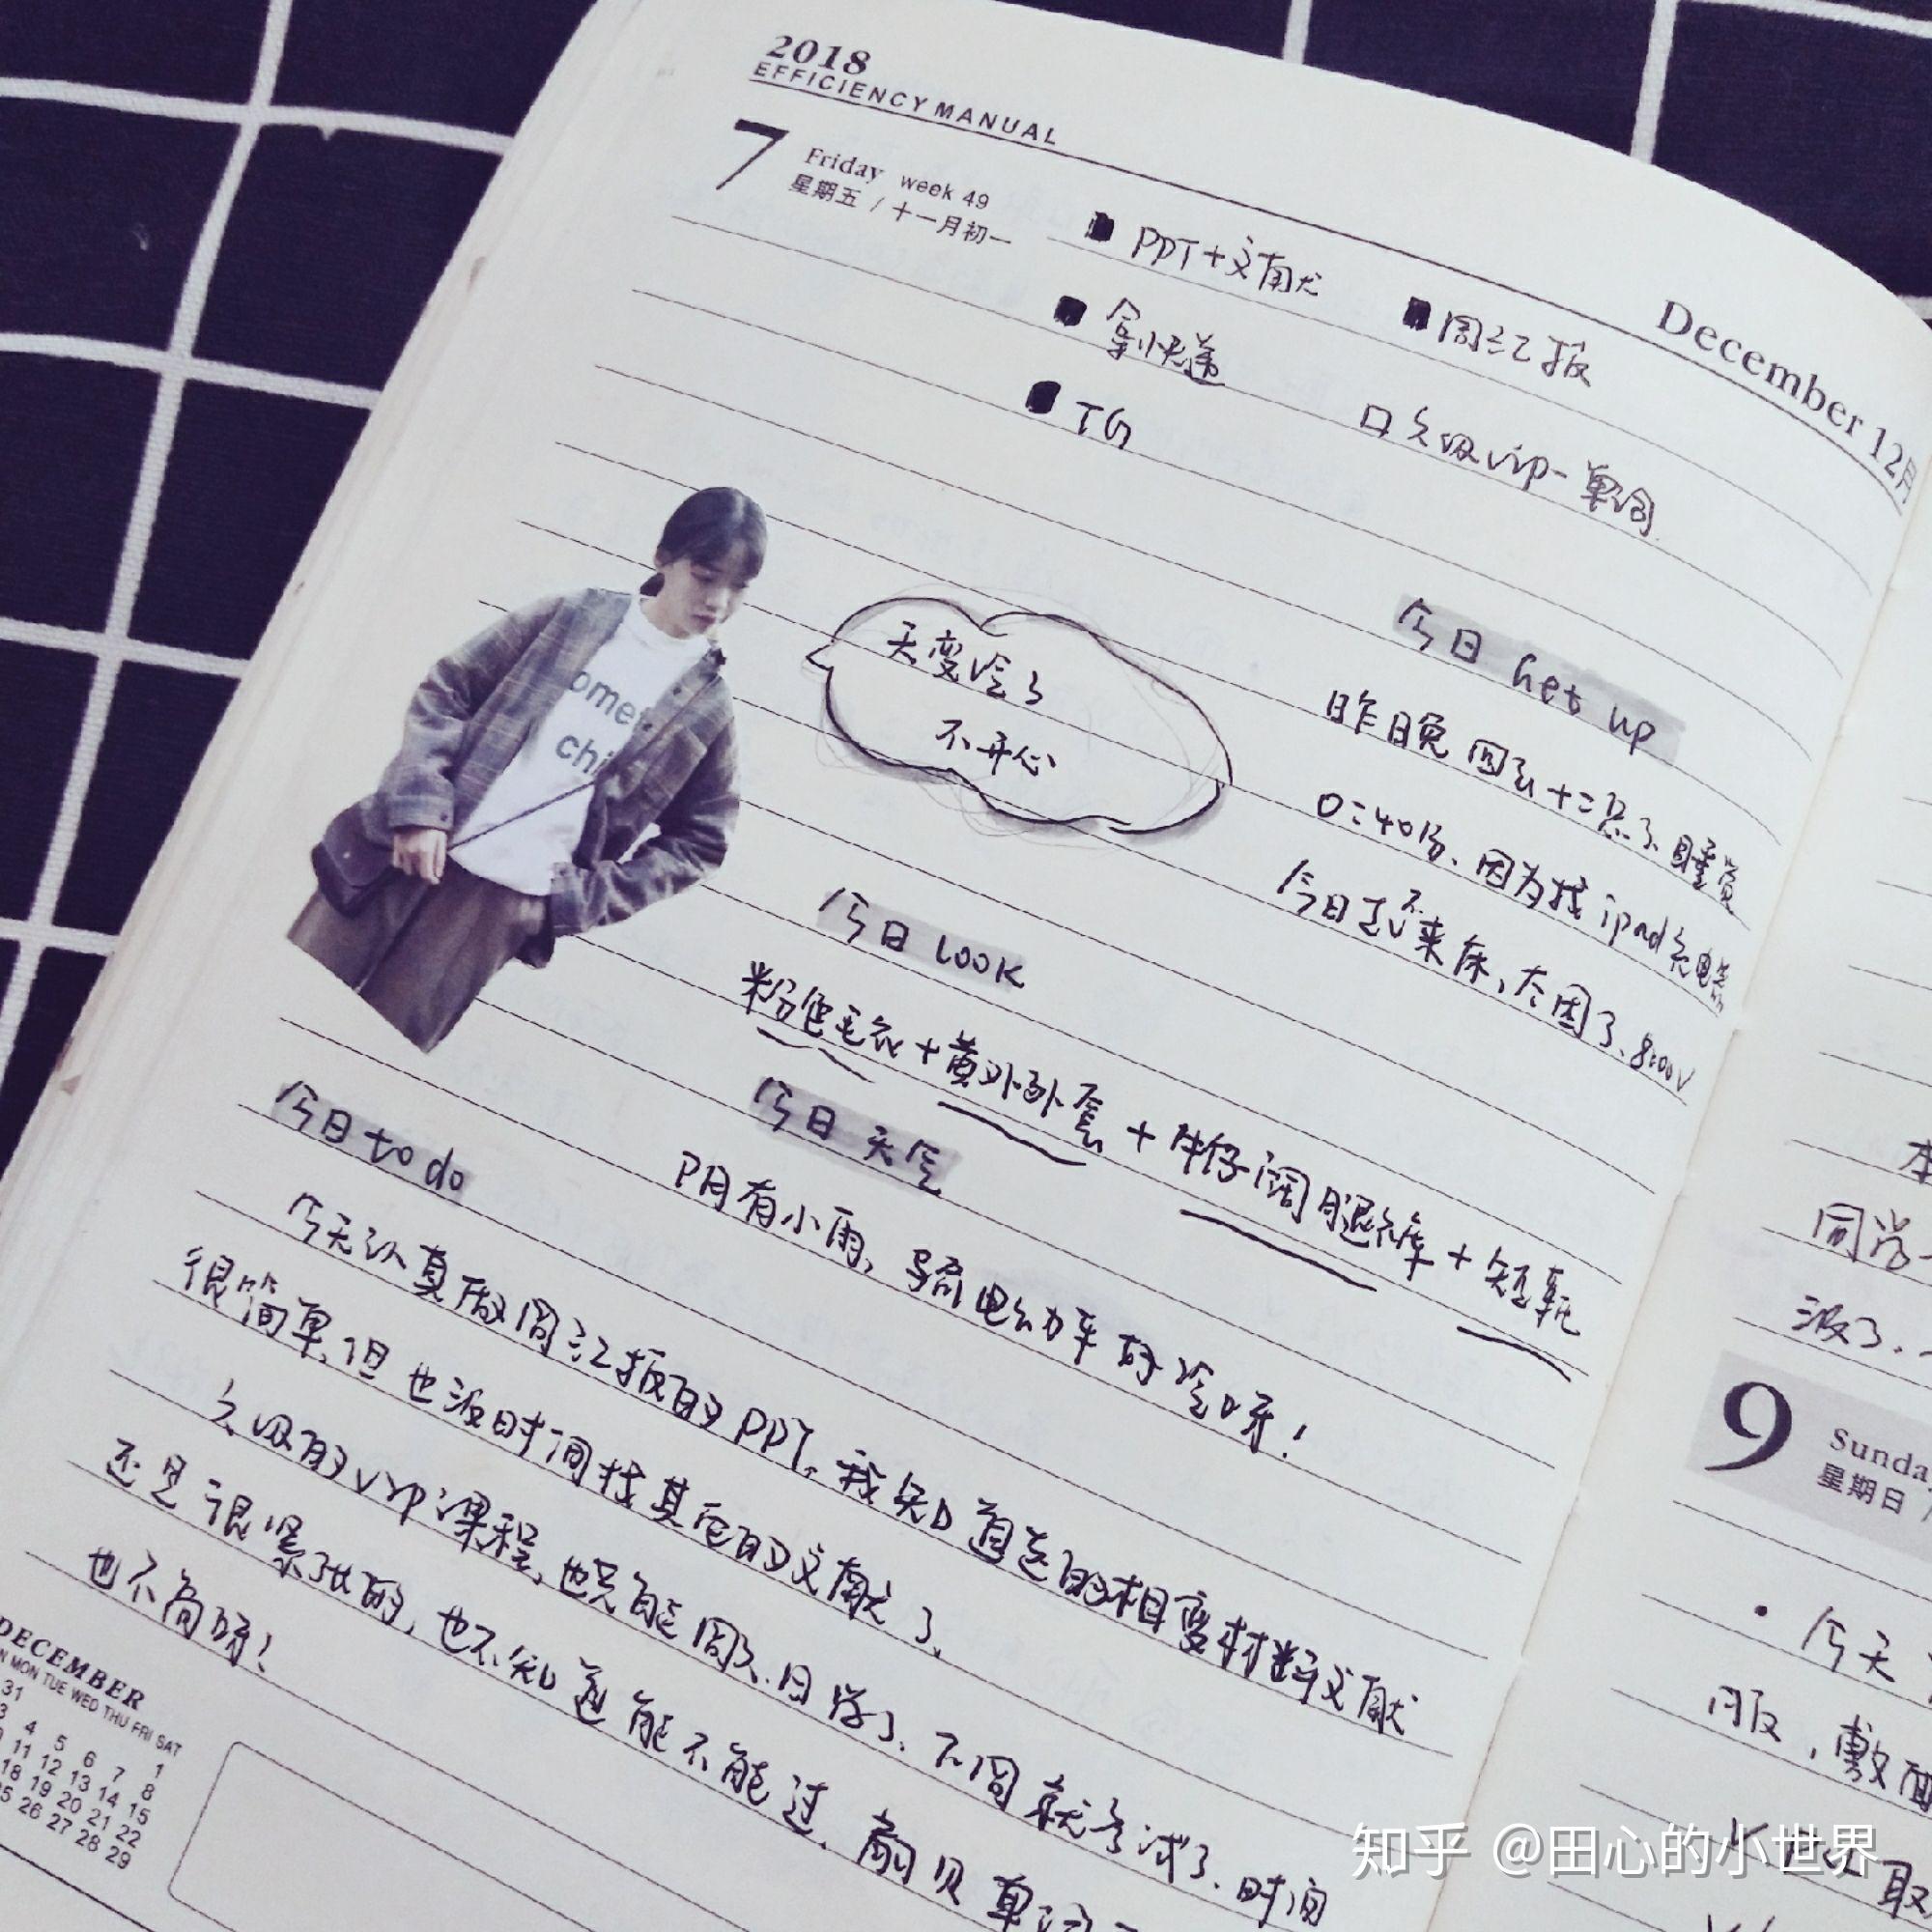 2018
EFFICIENCY MANUAL
7 Friday week 49
星期五 / 十一月初一
December 12月
■ PPT+文献
■ 周汇报
■ 拿快递
口 六级vip-单词
■ TG
天变冷了
不开心
ome
chi
今日 Get up
昨日晚回了十二点了,睡觉
0:40分、因为找ipad充电器
今日起不来床、太困了、8:00√
今日 look
粉色毛衣+黄外套+牛仔阔腿裤+短靴
今日 天气
阴有小雨,骑电动车好冷呀!
今日 to do
今天认真做周汇报的PPT,我知道的相变材料文献
很简单,但也没时间找其它的文献了、
六级的vip课程,也只能周六、日学了、不周就考试了、时间
还是很紧张的,也不知道能不能过、
也不简单!
DECEMBER
MON TUE WED THU FRI SAT
31 1
3 4 5 6 7 8
11 12 13 14 15
18 19 20 21 22
25 26 27 28 29
本
同学
没了、
9 Sunda
星期日 /
·今天
服,敷面
取
知乎 @田心的小世界